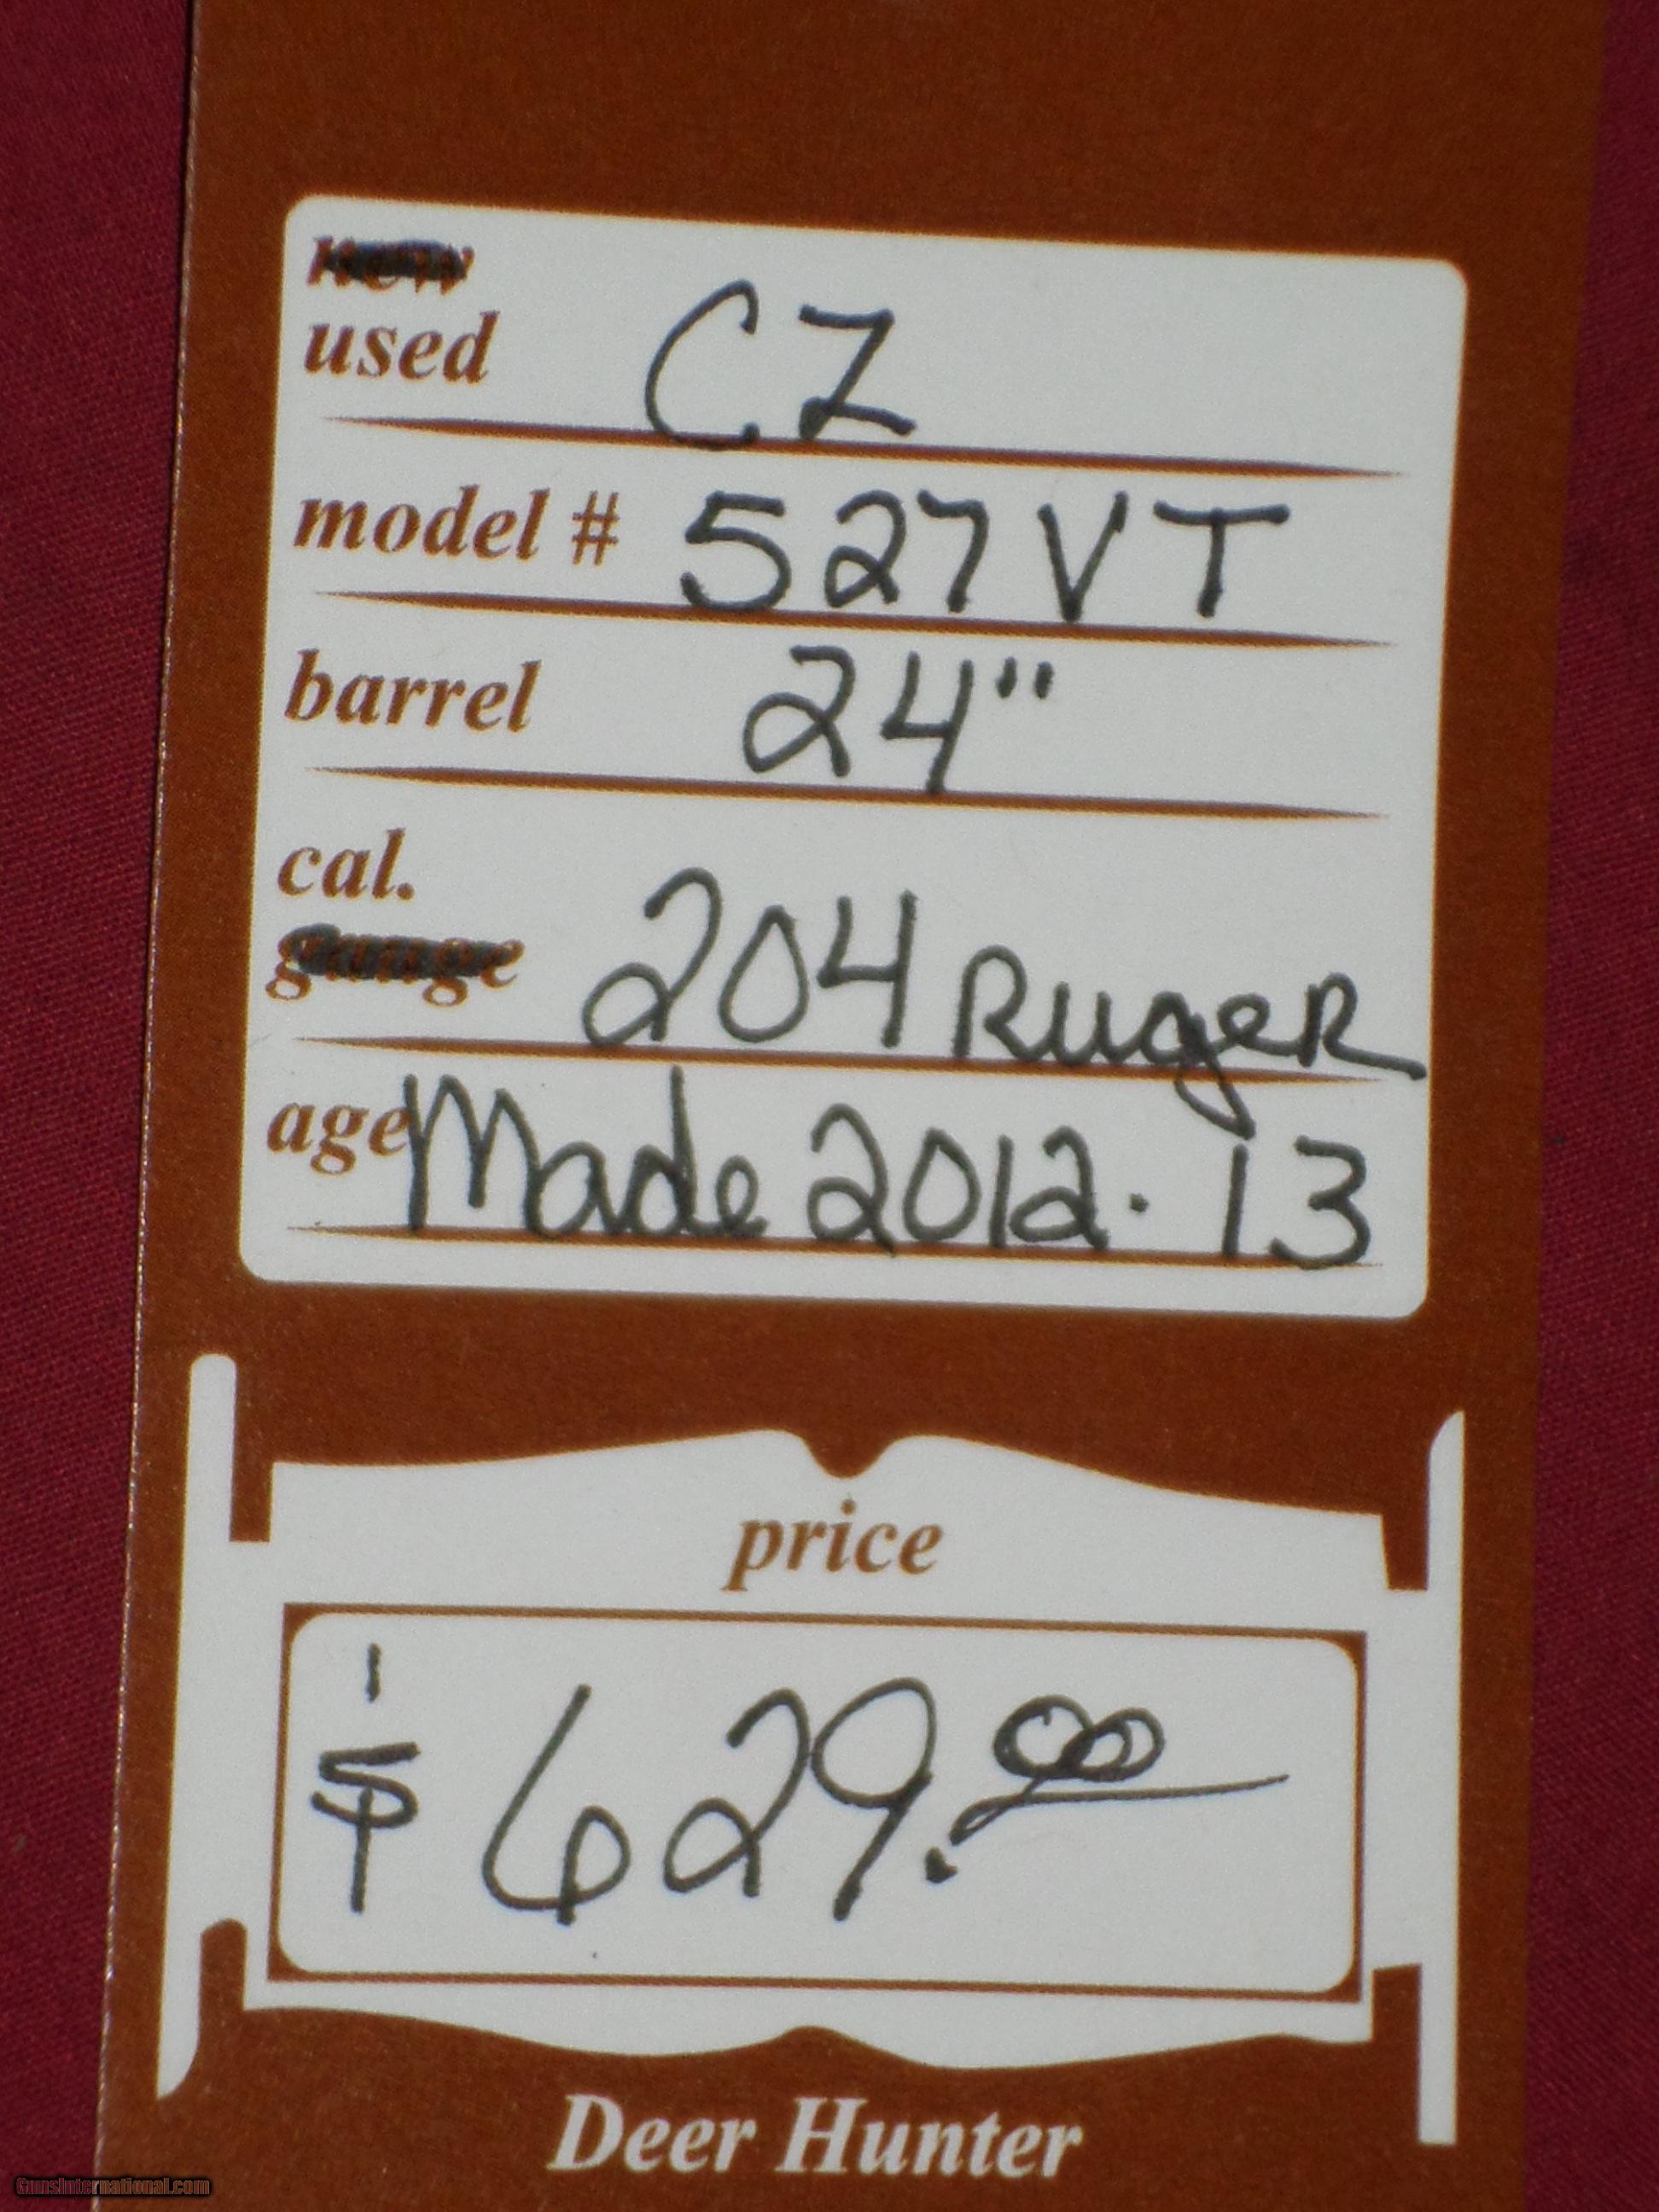 new
used CZ
model # 527 VT
barrel 24"
cal.
gauge 204 Ruger
age Made 2012 - 13
price
$ 629.00
Deer Hunter
GunsInternational.com